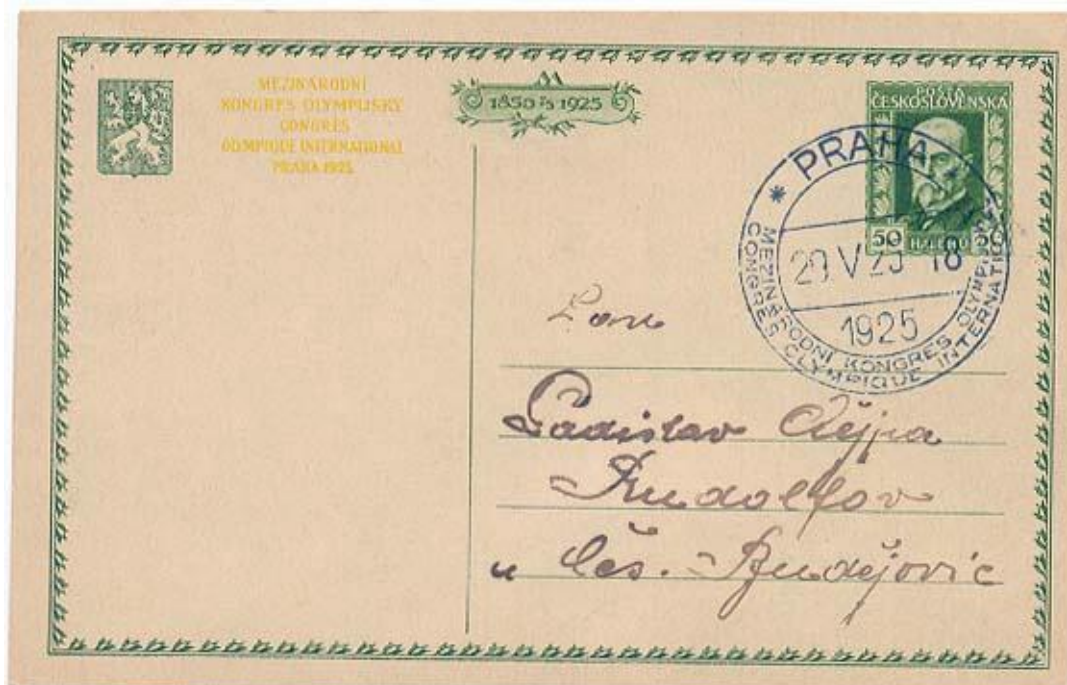 MEZINÁRODNÍ
KONGRES OLYMPIJSKÝ
CONGRES
OLYMPIQUE INTERNATIONAL
PRAHA 1925
1850 7/3 1925
POŠTA
ČESKOSLOVENSKÁ
50 HALÉŘŮ 50
* PRAHA
29 V 25 18
1925
MEZINÁRODNÍ KONGRES OLYMPIJSKÝ
CONGRES OLYMPIQUE INTERNATIONAL
Pan
Ladislav
Rudolfov
u Čes. Budějovic